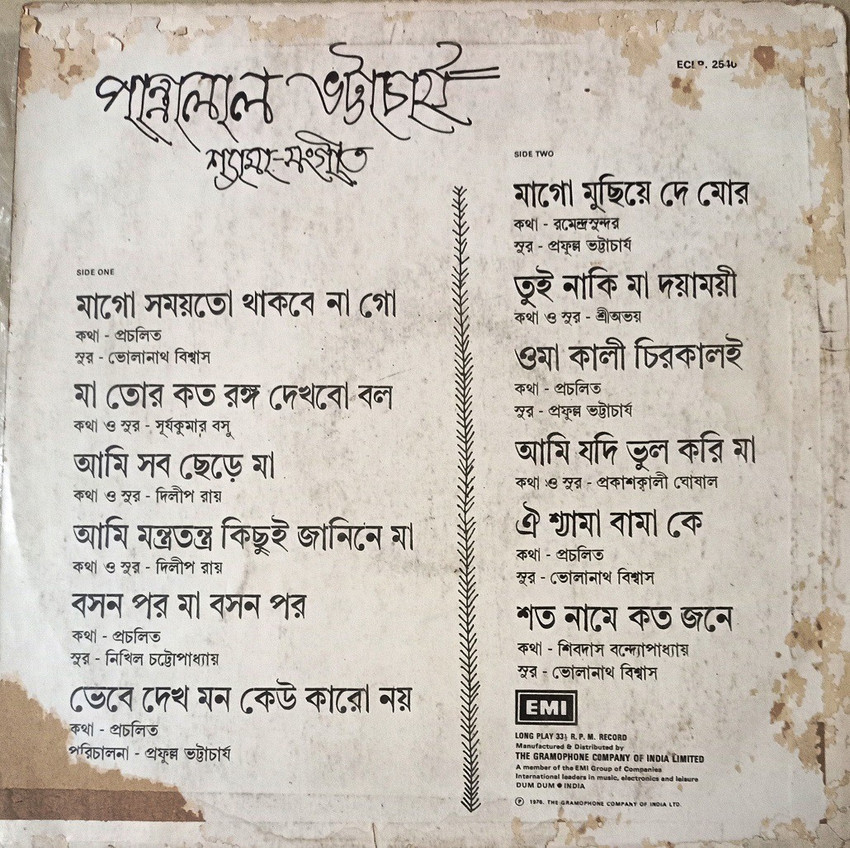 পান্নালাল ভট্টাচার্য
শ্যামা-সংগীত
ECLP. 2540
SIDE ONE
মাগো সময়তো থাকবে না গো
কথা - প্রচলিত
সুর - ভোলানাথ বিশ্বাস
মা তোর কত রঙ্গ দেখবো বল
কথা ও সুর - সূর্যকুমার বসু
আমি সব ছেড়ে মা
কথা ও সুর - দিলীপ রায়
আমি মন্ত্রতন্ত্র কিছুই জানিনে মা
কথা ও সুর - দিলীপ রায়
বসন পর মা বসন পর
কথা - প্রচলিত
সুর - নিখিল চট্টোপাধ্যায়
ভেবে দেখ মন কেউ কারো নয়
কথা - প্রচলিত
পরিচালনা - প্রফুল্ল ভট্টাচার্য
SIDE TWO
মাগো মুছিয়ে দে মোর
কথা - রমেন্দ্রসুন্দর
সুর - প্রফুল্ল ভট্টাচার্য
তুই নাকি মা দয়াময়ী
কথা ও সুর - শ্রীঅভয়
ওমা কালী চিরকালই
কথা - প্রচলিত
সুর - প্রফুল্ল ভট্টাচার্য
আমি যদি ভুল করি মা
কথা ও সুর - প্রকাশকালী ঘোষাল
ঐ শ্যামা বামা কে
কথা - প্রচলিত
সুর - ভোলানাথ বিশ্বাস
শত নামে কত জনে
কথা - শিবদাস বন্দ্যোপাধ্যায়
সুর - ভোলানাথ বিশ্বাস
EMI
LONG PLAY 33⅓ R. P. M. RECORD
Manufactured & Distributed by
THE GRAMOPHONE COMPANY OF INDIA LIMITED
A member of the EMI Group of Companies
International leaders in music, electronics and leisure
DUM DUM ● INDIA
Ⓟ 1976. THE GRAMOPHONE COMPANY OF INDIA LTD.